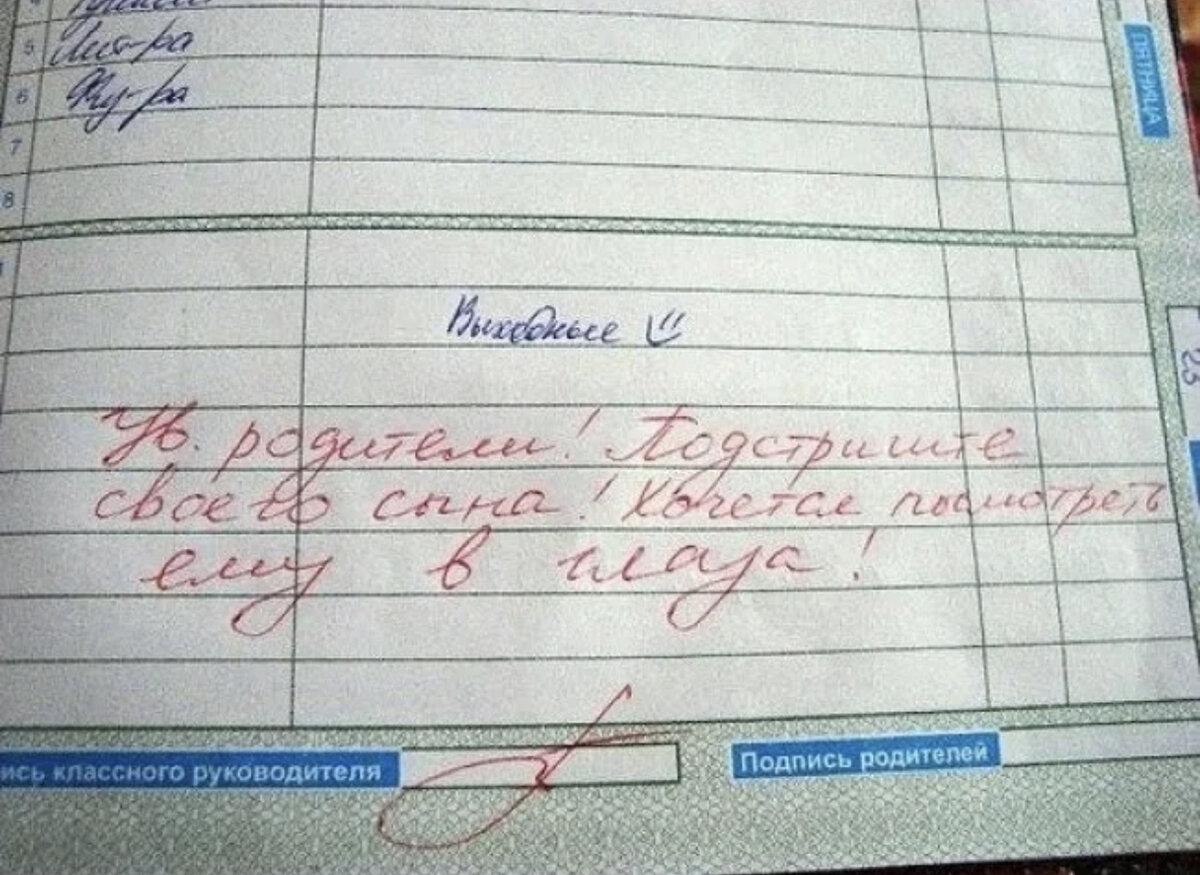 5 Лит-ра
6 Физ-ра
7
8
ПЯТНИЦА
Выходные
Ув. родители! Подстригите
своего сына! Хочется посмотреть
ему в глаза!
ись классного руководителя
Подпись родителей